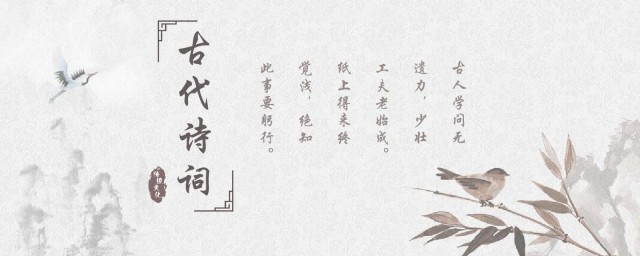 古代诗词
古人学问无
遗力，少壮
工夫老始成。
纸上得来终
觉浅，绝知
此事要躬行。